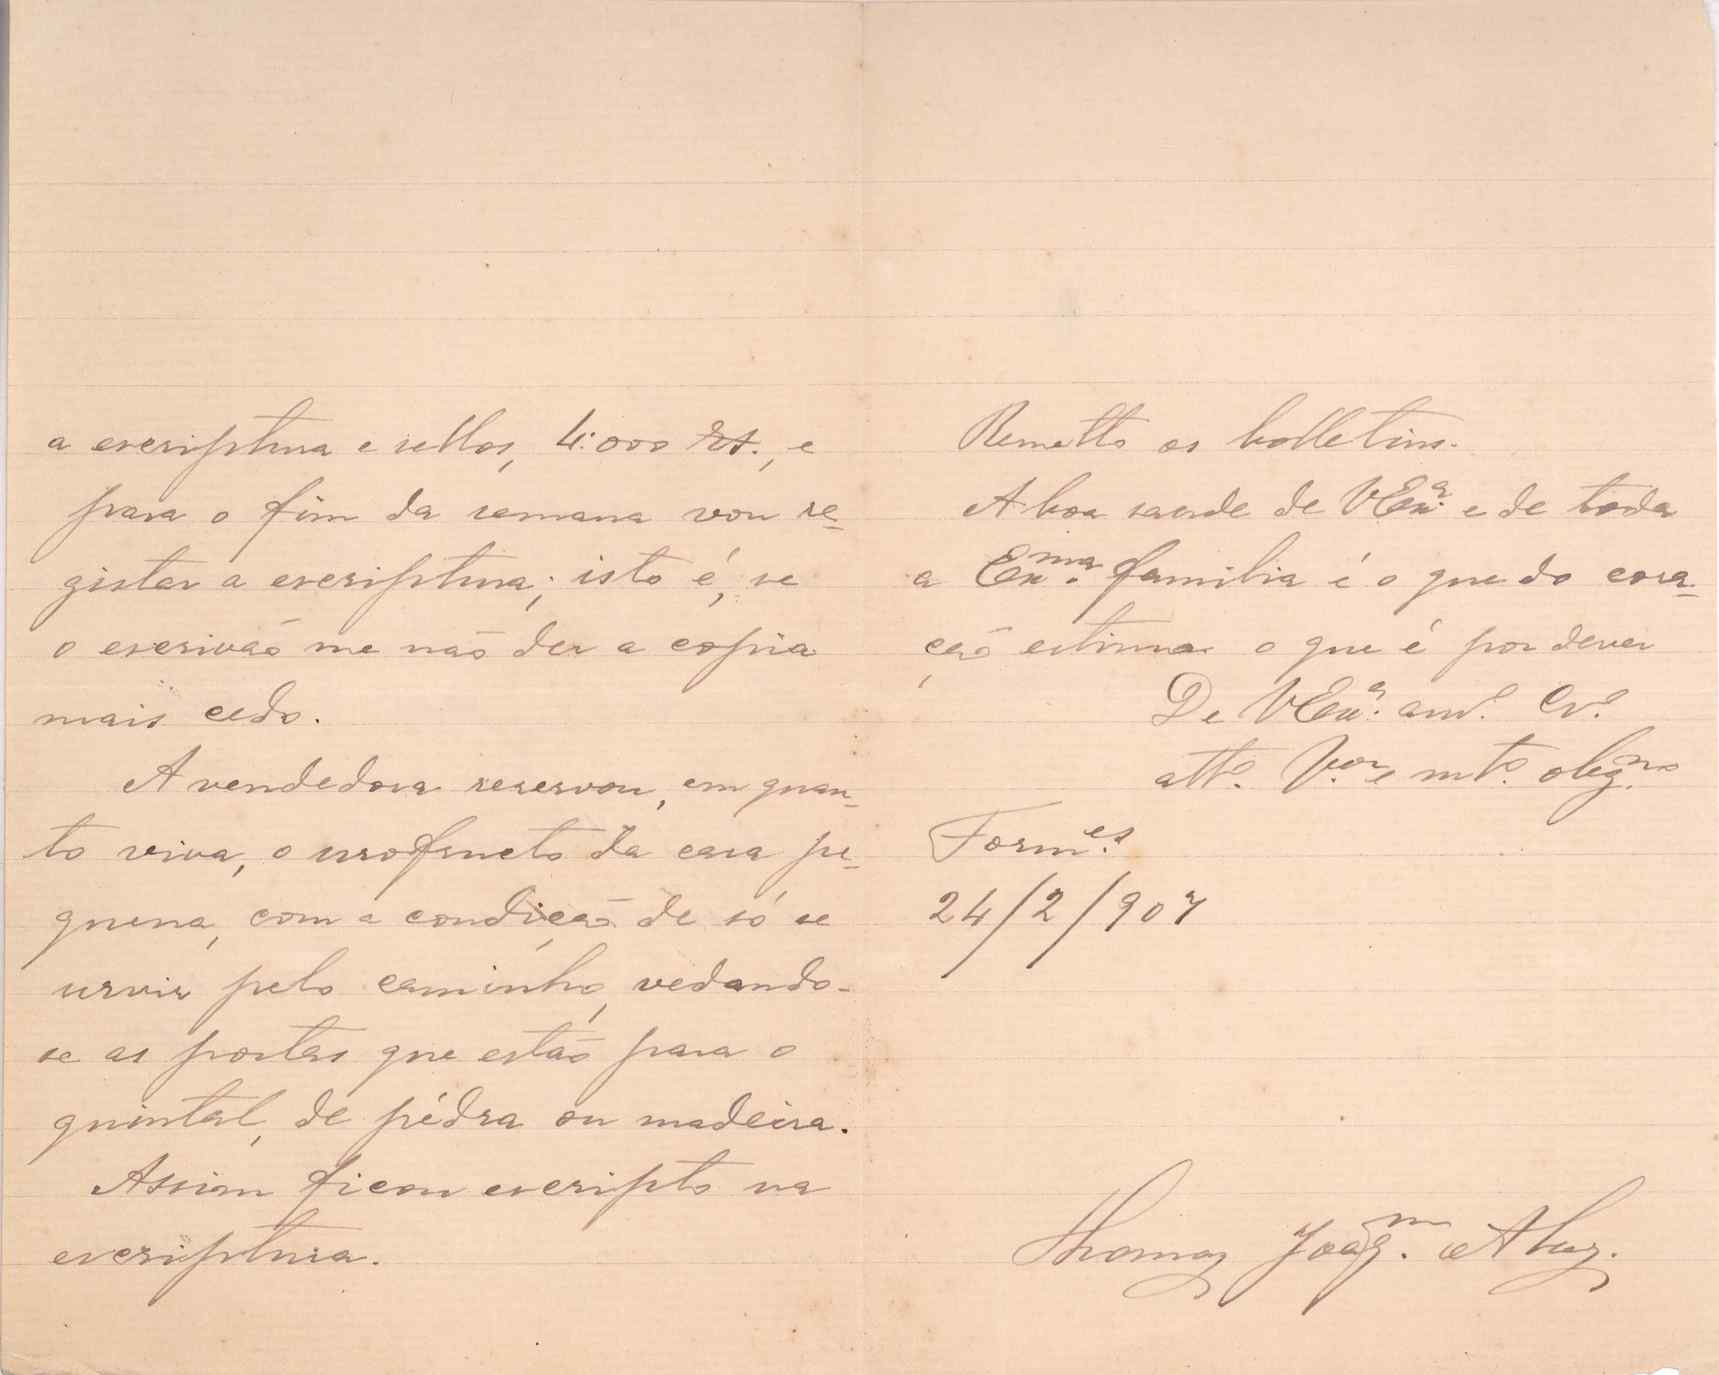 a escriptura e sellos, 4:000 rs., e
para o fim da semana vou re-
gistar a escriptura; isto é, se
o escrivão me não der a copia
mais cedo.
A vendedora reservou, em quan-
to viva, o usofructo da casa pe-
quena, com a condicção de só se
servir pelo caminho, vedando-
se as portas que estão para o
quintal, de pédra ou madeira.
Assim ficou escripto na
escriptura.
Remetto os bolletins.
A boa saude de V Exª. e de toda
a Exma. familia é o que do cora-
ção estima o que é por dever
De V Exª. amº. Crº.
attº. Vor. e mtº. obgmo.
Formes.
24/2/907
Thomaz Joaqm. Alvz.